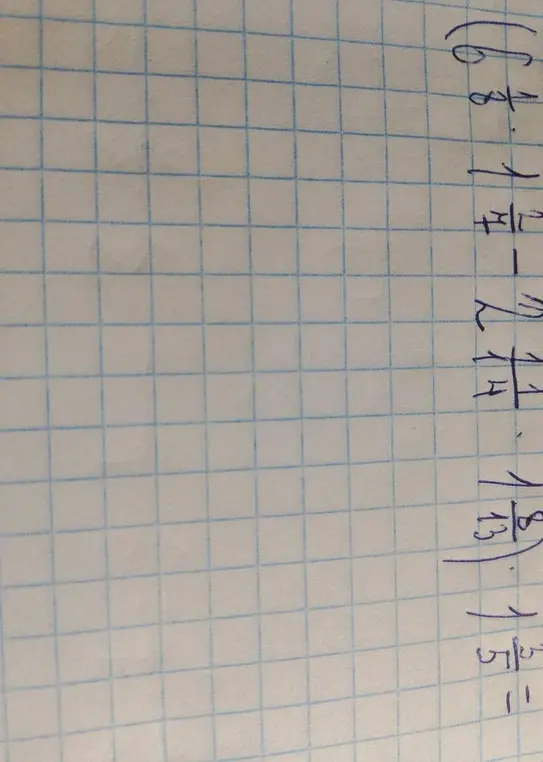 (6 1/8 · 1 2/7 - 2 11/14 · 1 8/13) · 1 3/5 =